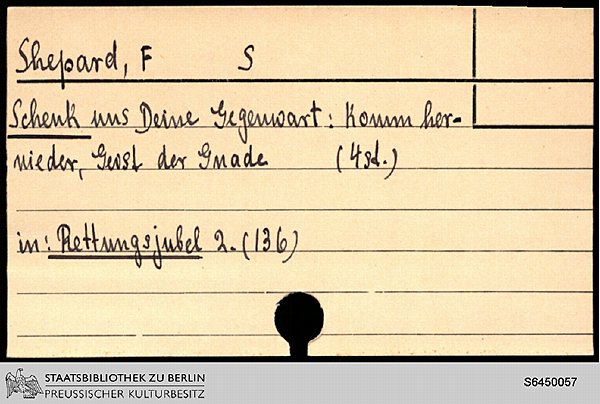 Shepard, F S
Schenk uns Deine Gegenwart: Komm her-
nieder, Geist der Gnade (4sd.)
in: Rettungsjubel 2. (136)
STAATSBIBLIOTHEK ZU BERLIN
PREUSSISCHER KULTURBESITZ
S6450057